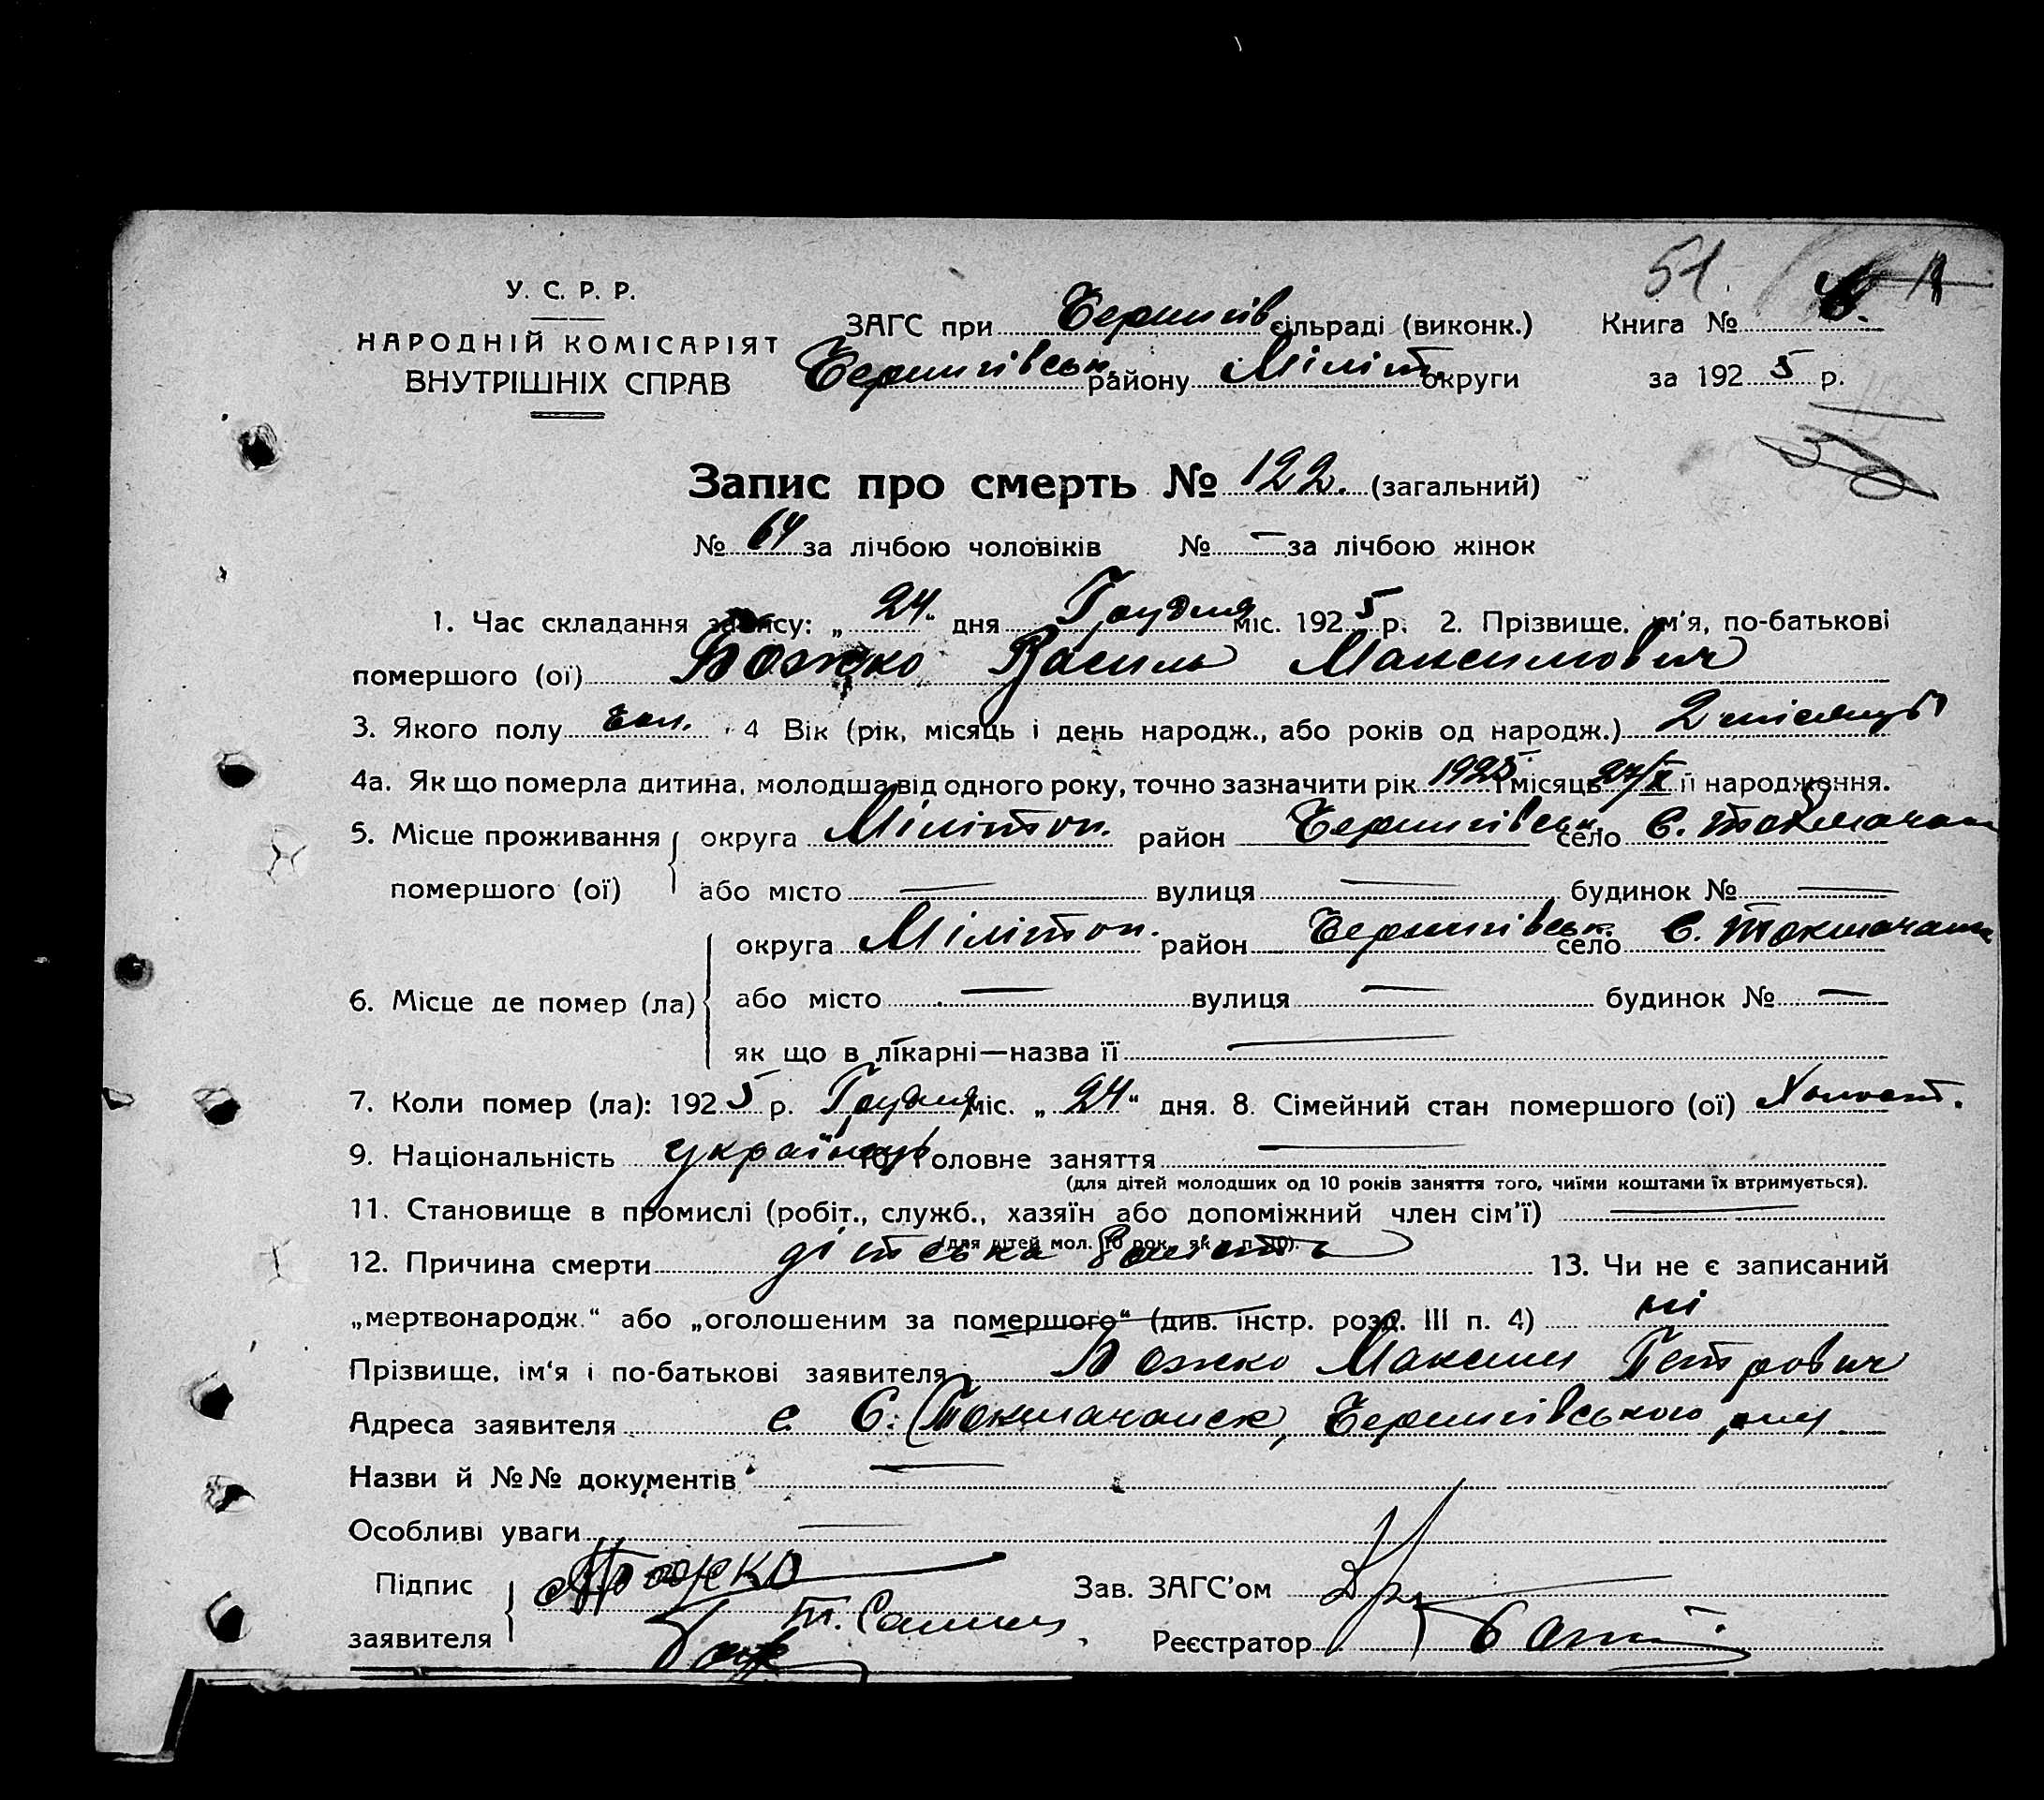 51.
У. С. Р. Р.
НАРОДНІЙ КОМІСАРІЯТ
ВНУТРІШНІХ СПРАВ
ЗАГС при Чернигів сільраді (виконк.) Книга №
Чернигівськ. району Мілітп. округи за 1925 р.
Запис про смерть № 122. (загальний)
№ 64 за лічбою чоловіків № — за лічбою жінок
1. Час складання запису: „24“ дня Грудня міс. 1925 р. 2. Прізвище, ім'я, по-батькові
помершого (ої) Божко Василь Максимович
3. Якого полу чол. 4 Вік (рік, місяць і день народж., або років од народж.) 2 місяць
4а. Як що померла дитина, молодша від одного року, точно зазначити рік 1925 і місяць 24/X її народження.
5. Місце проживання округа Мілітоп. район Чернигівськ. село С. Токмачанс
помершого (ої) або місто — вулиця — будинок № —
округа Мілітоп. район Чернигівськ. село С. Токмачанс
6. Місце де помер (ла) або місто — вулиця — будинок № —
як що в лікарні—назва її —
7. Коли помер (ла): 1925 р. Грудня міс. „24“ дня. 8. Сімейний стан помершого (ої) Холост.
9. Національність українець 10. Головне заняття —
(для дітей молодших од 10 років заняття того, чиїми коштами їх втримується).
11. Становище в промислі (робіт., служб., хазяїн або допоміжний член сім'ї) —
(для дітей мол. 10 рок. як в п. 10).
12. Причина смерти дітська болість 13. Чи не є записаний
„мертвонародж.“ або „оголошеним за помершого“ (див. інстр. розд. III п. 4) ні
Прізвище, ім'я і по-батькові заявителя Божко Максим Петрович
Адреса заявителя с. С. Токмачанск, Чернигівського р-ну
Назви й №№ документів —
Особливі уваги —
Підпис Божко Зав. ЗАГС'ом
заявителя Реєстратор